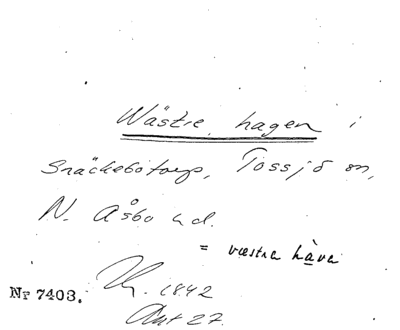 Wästre hagen i
Snäckebotorp, Tossjö sn,
N. Åsbo hd.
= væstra hàva
Nr 7403. 1842
Akt 27.